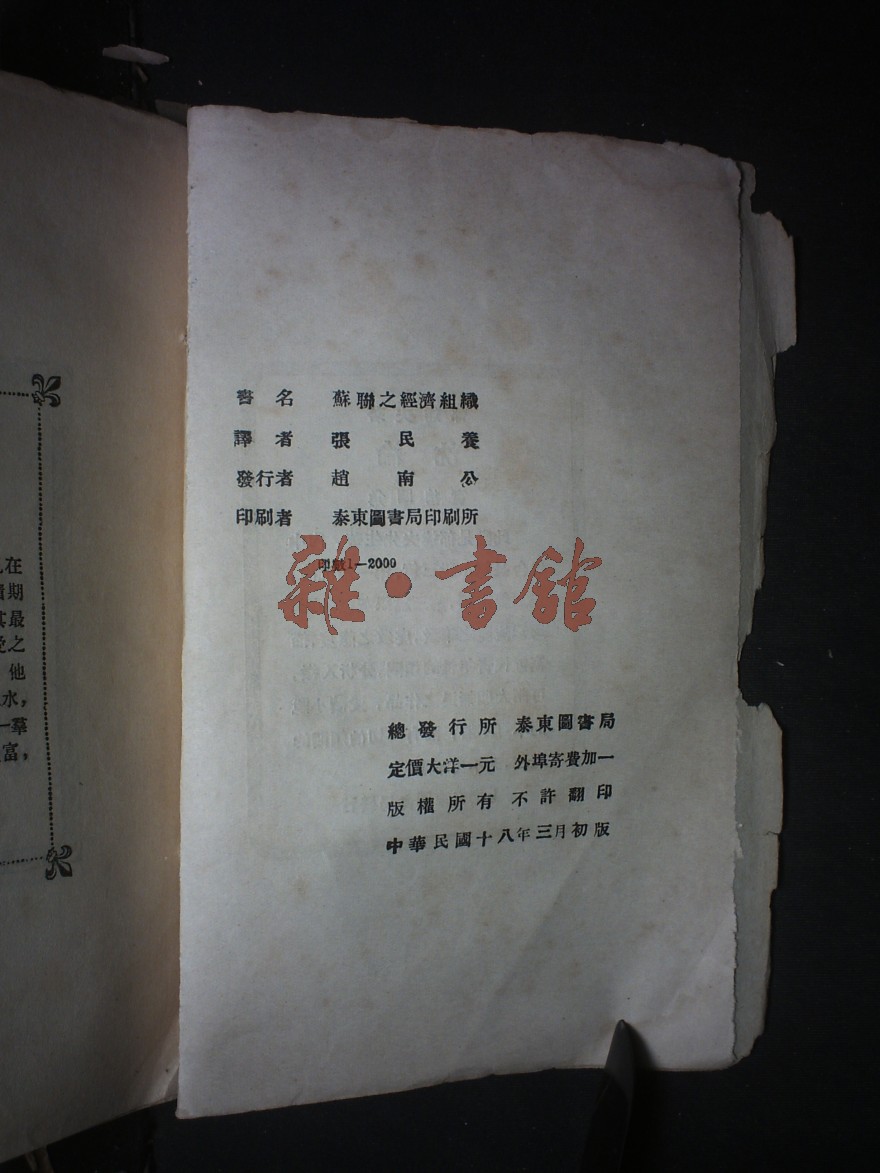 書名 蘇聯之經濟組織
譯者 張民養
發行者 趙南公
印刷者 泰東圖書局印刷所
印數1—2000
雜·書館
總發行所 泰東圖書局
定價大洋一元 外埠寄費加一
版權所有 不許翻印
中華民國十八年三月初版
在
期
其最
之
他
水，
一羣
富，